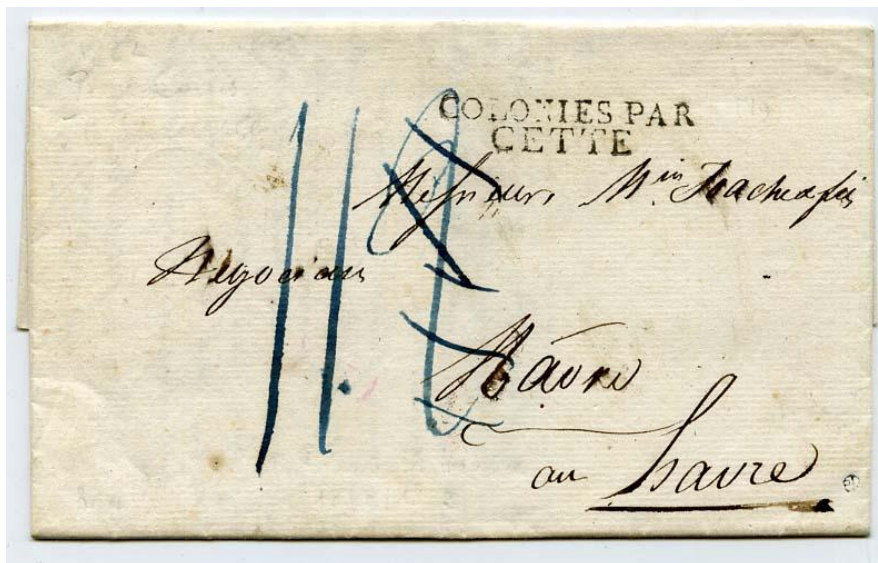 COLONIES PAR
CETTE
Messieurs Min
Negocians
Hâvre
au havre